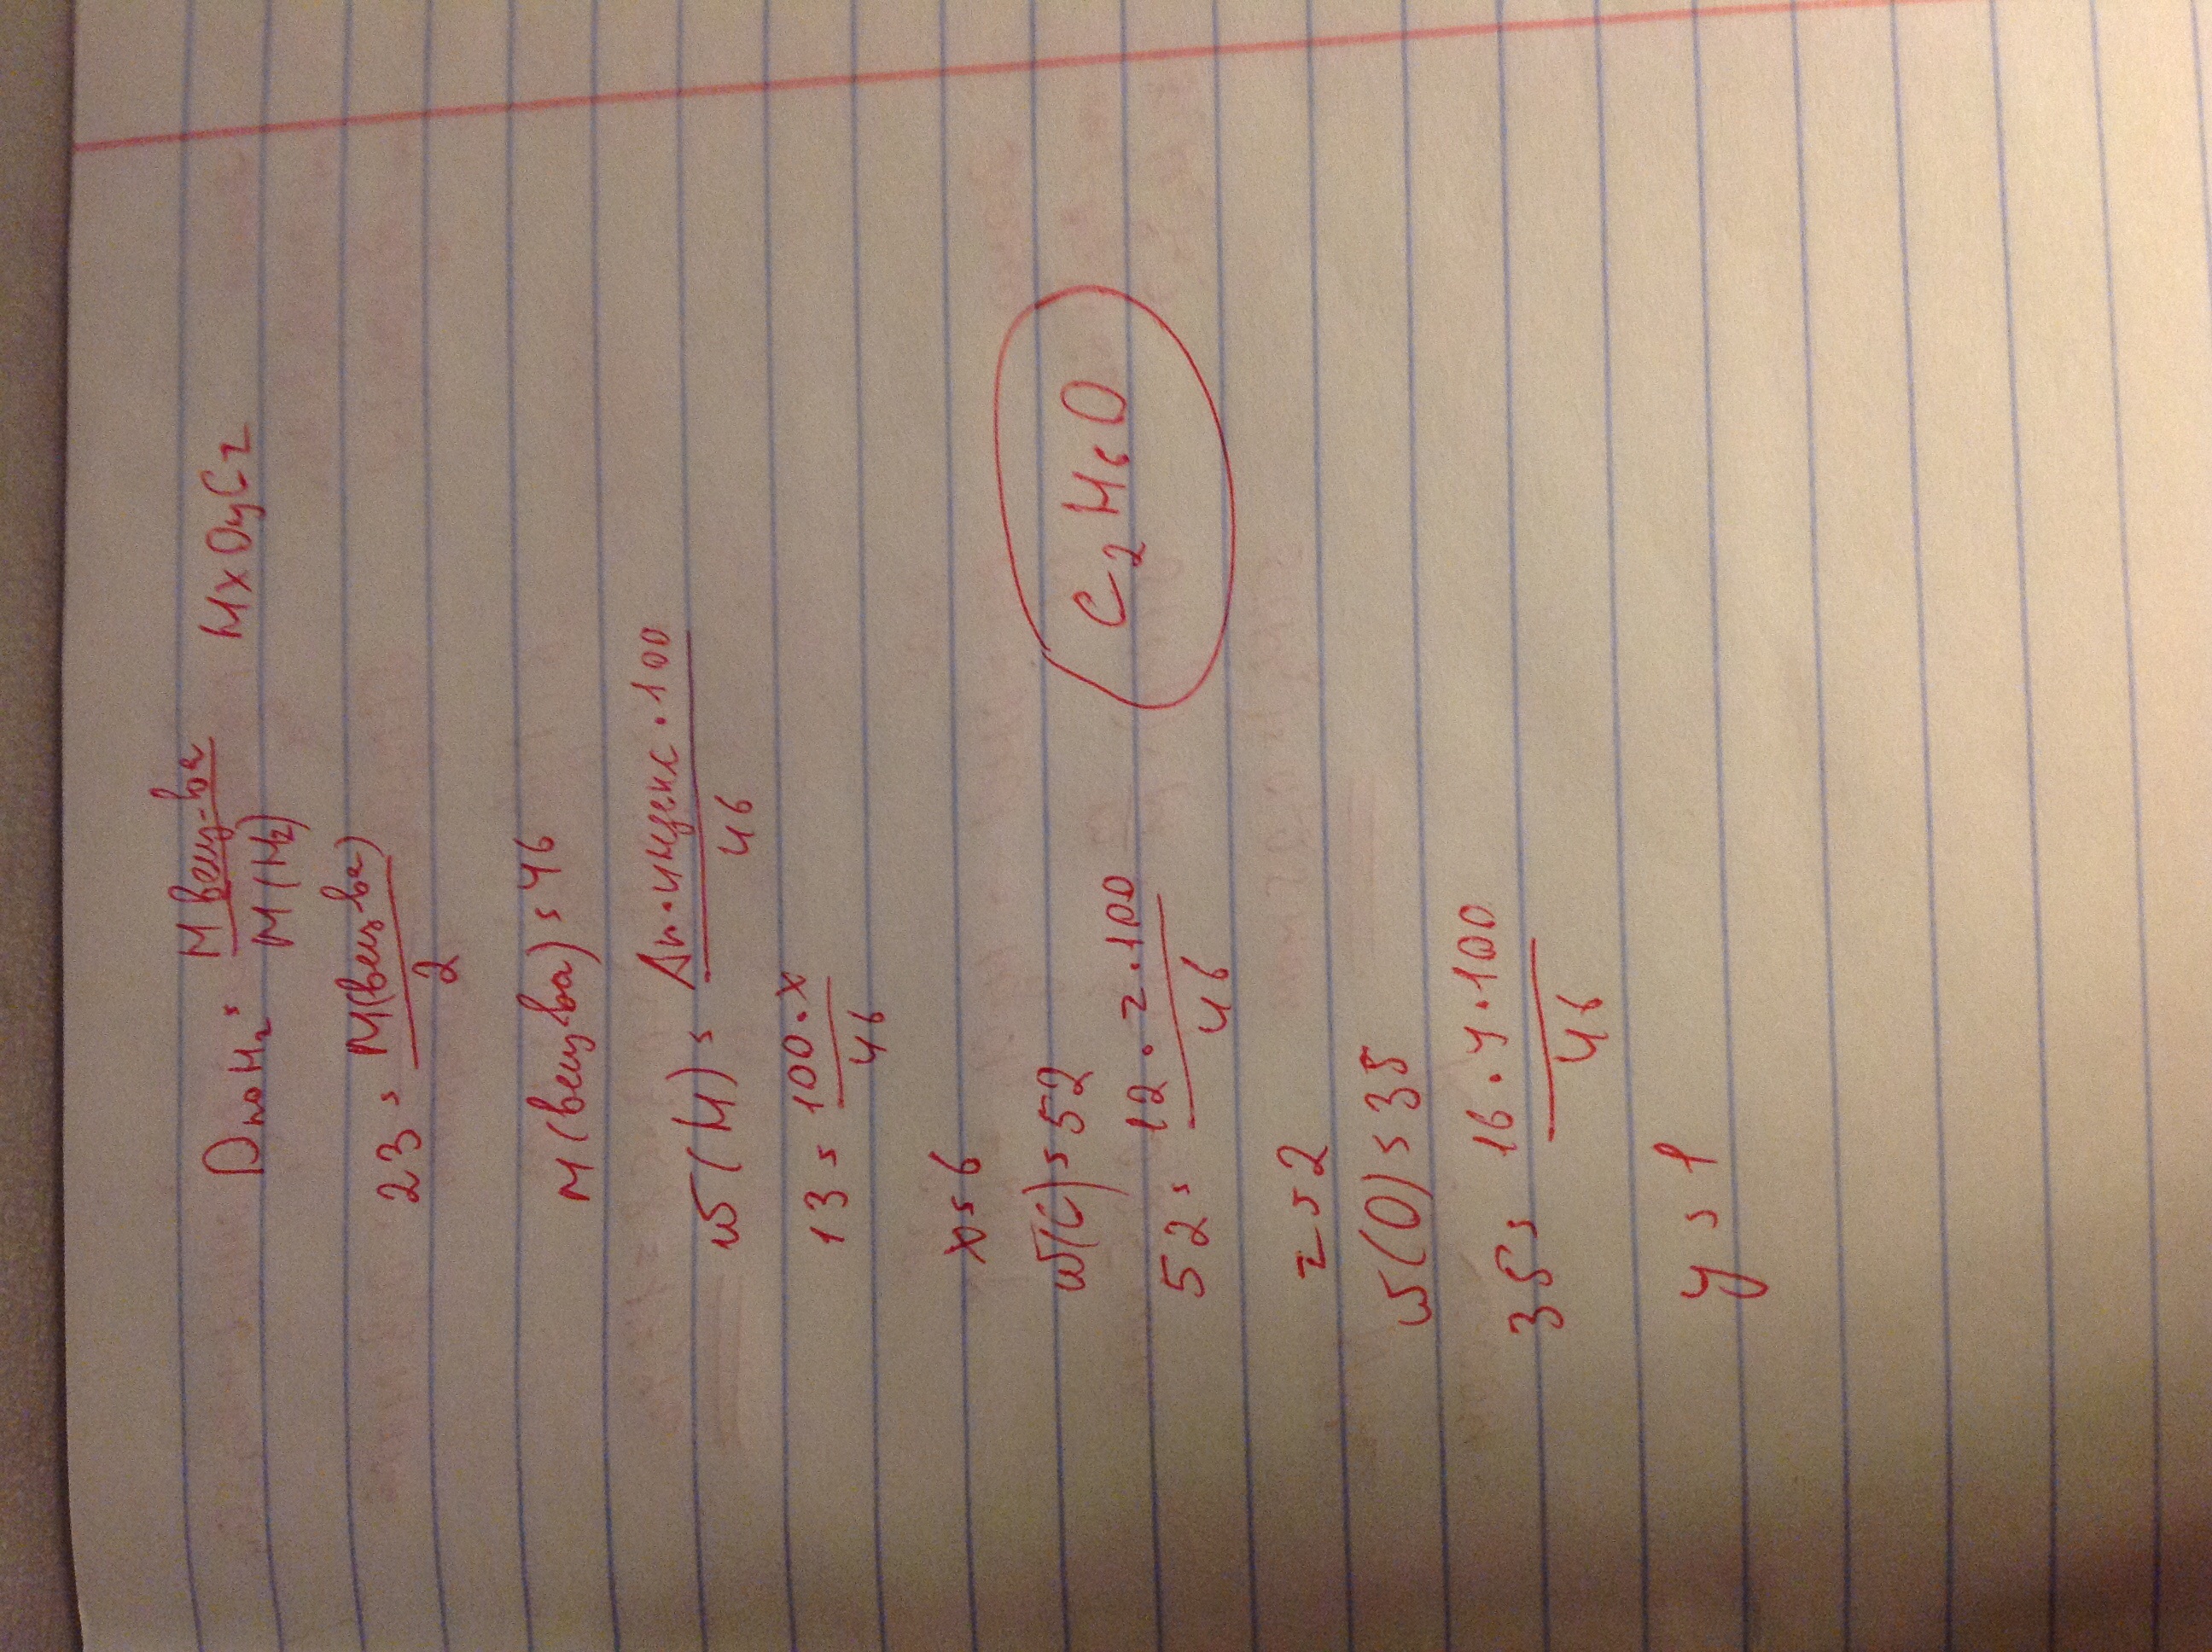 D по H₂ = M вещ-ва / M(H₂) HxOyCz
23 = M(вещ-ва) / 2
M(вещ-ва) = 46
w(H) = Ar · индекс · 100 / 46
13 = 100 · x / 46
x = 6
w(C) = 52
52 = 12 · z · 100 / 46
C₂H₆O
z = 2
w(O) = 35
35 = 16 · y · 100 / 46
y = 1